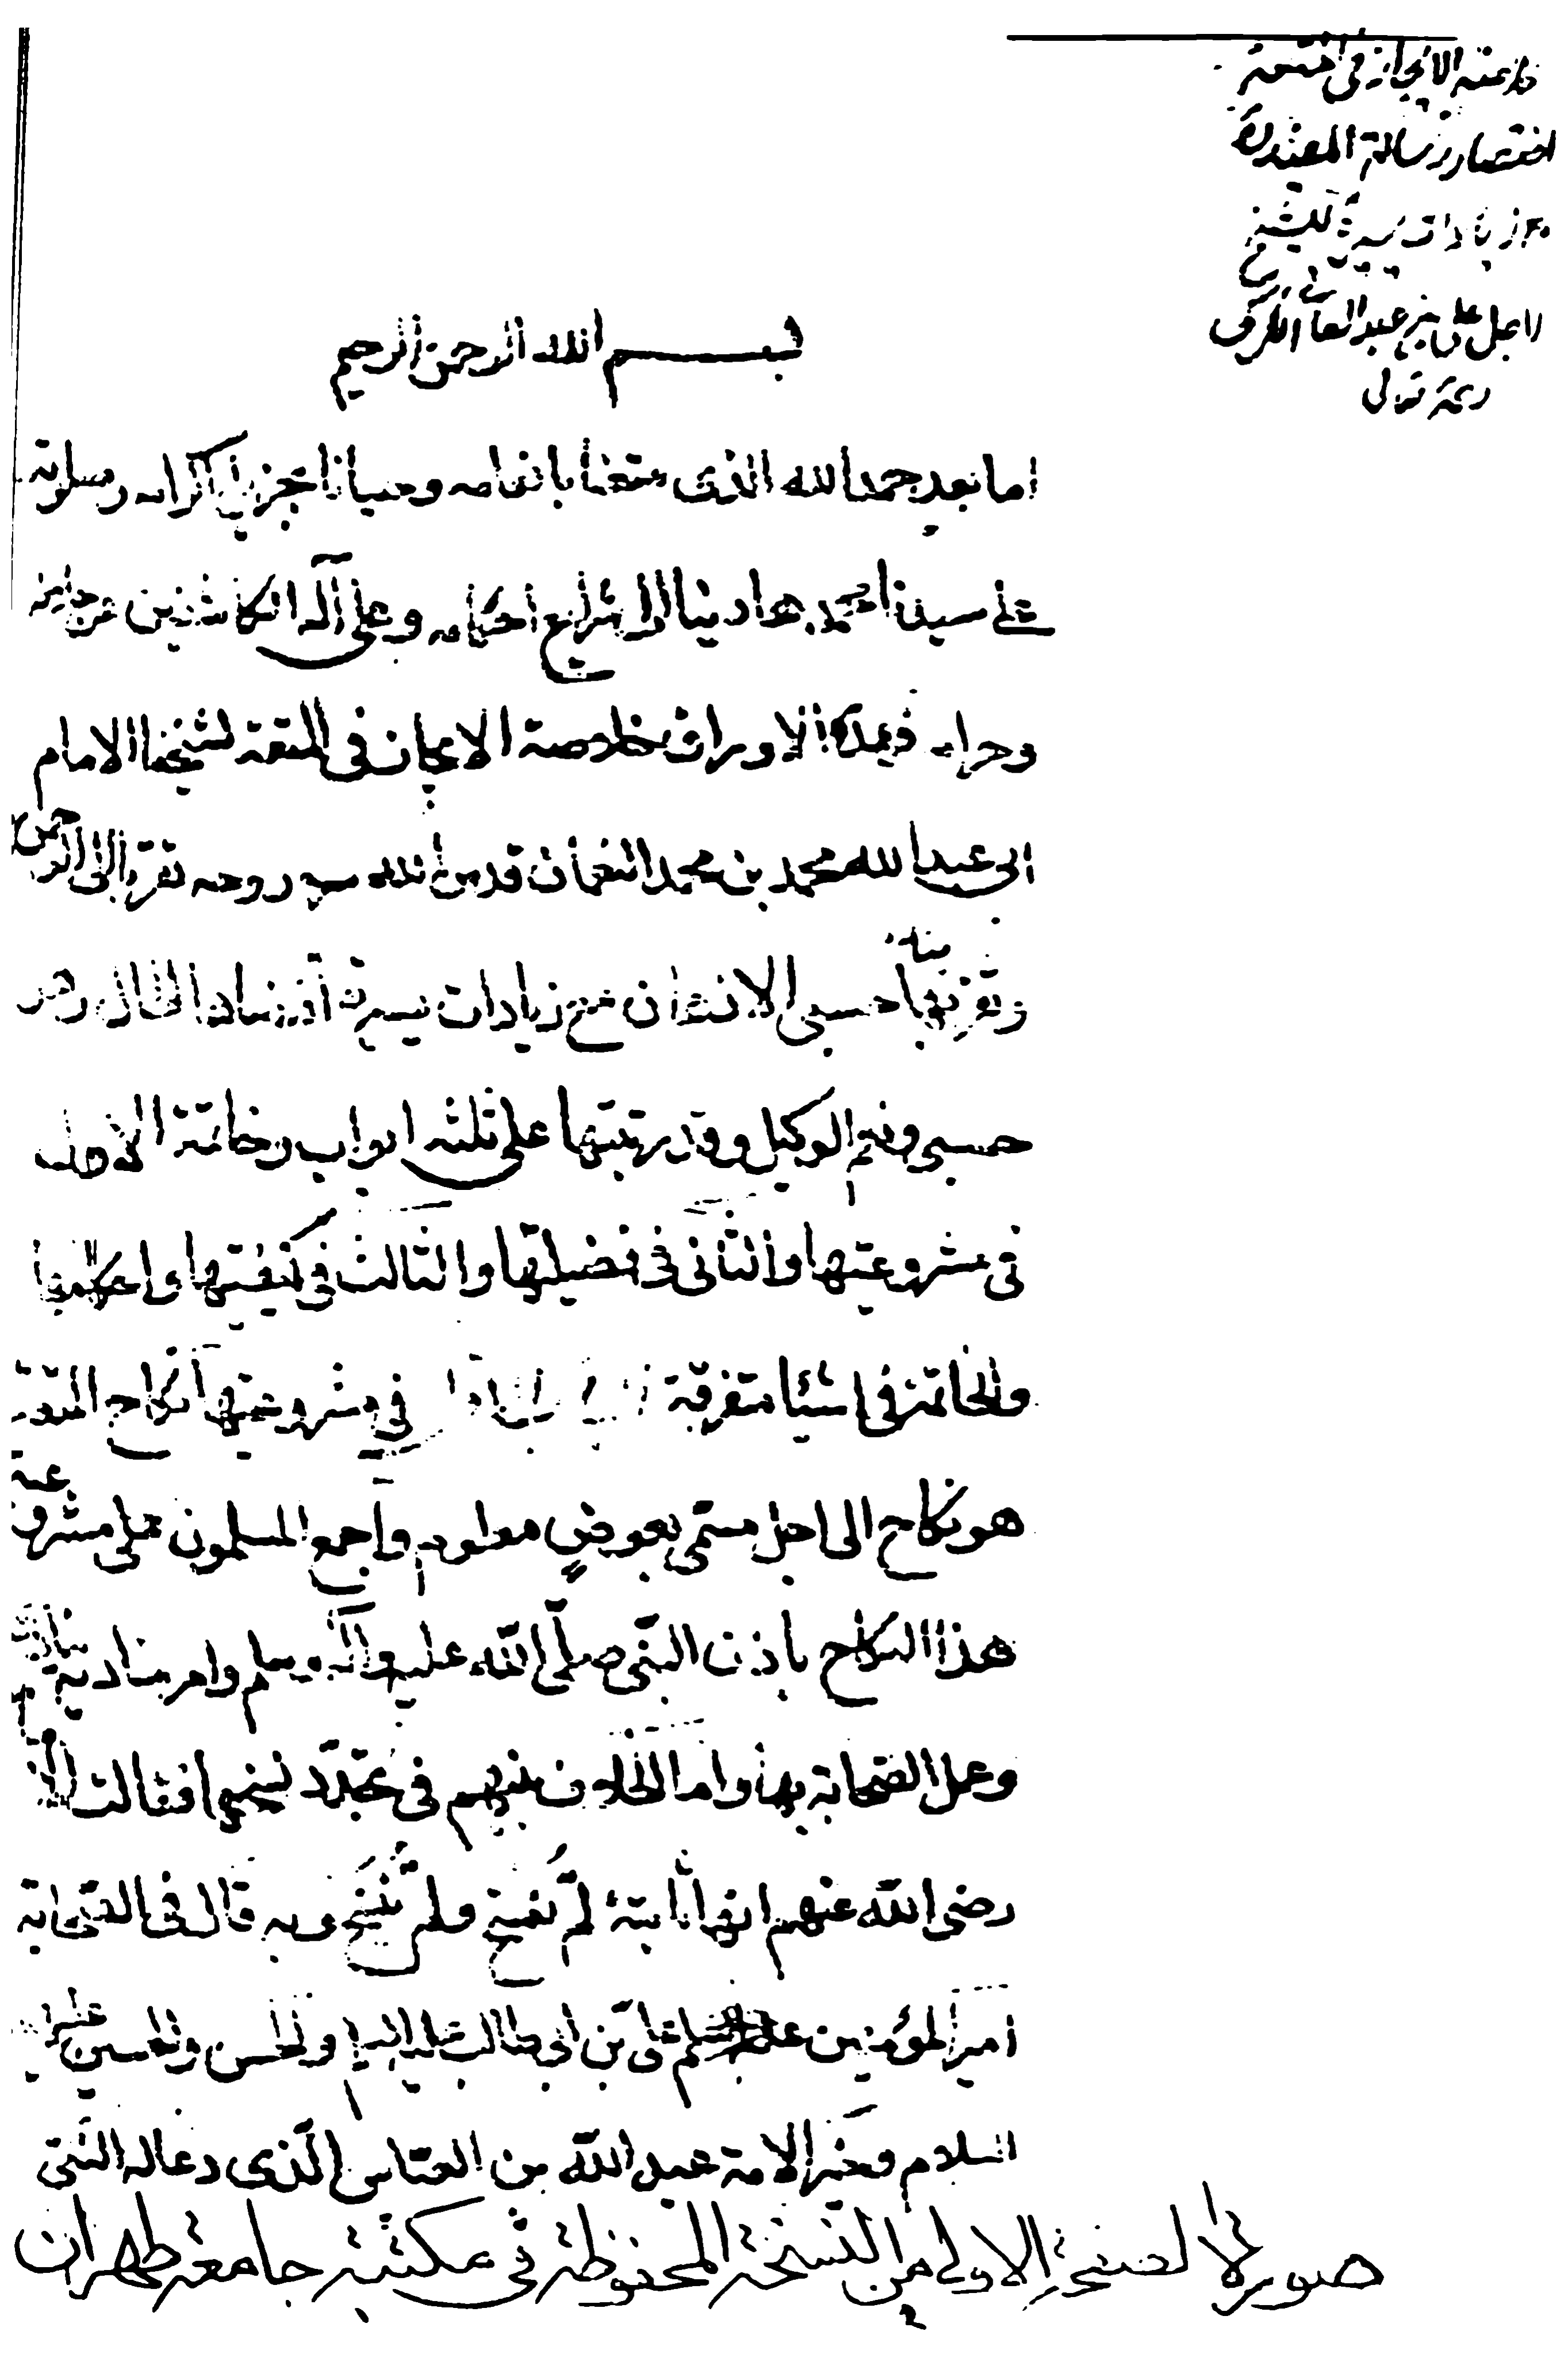 خلاصة الايجاز في المتعة
اختصار رسالة المفيد ره
مع زيادات يسيرة للشيخ
الاجل علي بن عبد العالي الكركي
رحمه تعالى
بسم الله الرحمن الرحيم
اما بعد حمد الله الذي متعنا بانعامه وحبانا جزيل اكرامه وصلوته
على سيدنا محمد هادينا الى شرايع احكامه وعلى آله الكاشفين عن حلاله
وحرامه فهذه الاوراق خلاصة الايجاز في المتعة لشيخنا الامام
ابي عبد الله محمد بن محمد النعمان قدس الله روحه تقربا الى الرحمن
وتقريبا حسبى الاخوان مع زيادات يسيرة وهو
حسبي ونعم الوكيل وقد رتبتها على ثلثه ابواب وخاتمة الاول
في مشروعيتها والثاني في فضيلتها والثالث في كيفيتها واحكامها
والخاتمة في اشيئا متفرقة في مشروعيتها نكاح المتعة
هو نكاح الى اجل مسمى بعوض معلوم واجمع المسلمون على مشروعية
هذا النكاح باذن النبي صلى الله عليه وآله وسلم وامر مناديه
وعمل الصحابة بها وانما الخلاف بينهم في تجدد نسخها فقالت
رضى الله عنهم انها ثابتة لم تفسخ ولم تنسخ وبه قال في الصحابة
امير المؤمنين علي بن ابي طالب عليه السلام والحسن والحسين عليهما
السلام وحبر الامة عبد الله بن العباس الذي دعا له النبي
صورة الصفحة الاولى من النسخة المحفوظة في مكتبة جامعة طهران